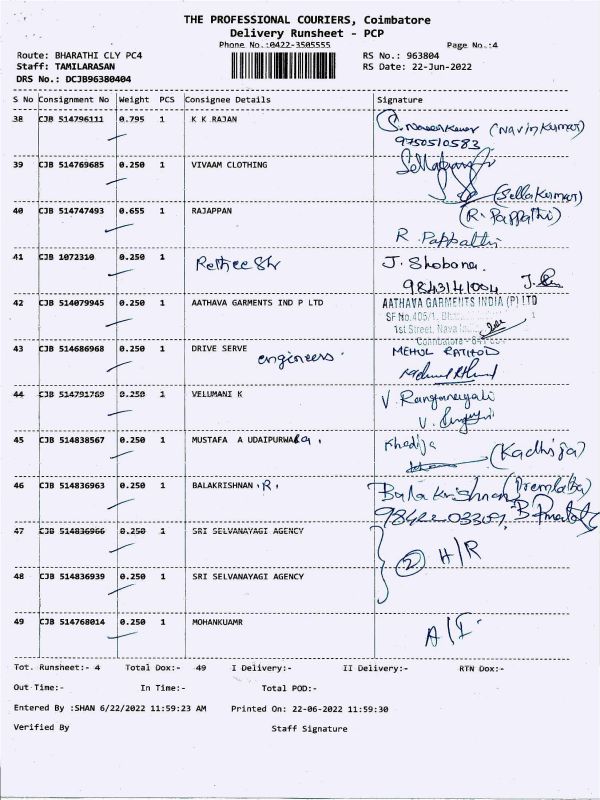 THE PROFESSIONAL COURIERS, Coimbatore
Delivery Runsheet - PCP
Phone No.:0422-3505555 Page No.:4
Route: BHARATHI CLY PC4 RS No.: 963804
Staff: TAMILARASAN RS Date: 22-Jun-2022
DRS No.: DCJB96380404
S No Consignment No Weight PCS Consignee Details Signature
38 CJB 514796111 0.795 1 K K RAJAN S. Naveen Kumar (Navin Kumar)
9750510583
39 CJB 514769685 0.250 1 VIVAAM CLOTHING
(Sella Kumar)
40 CJB 514747493 0.655 1 RAJAPPAN (R. Pappathi)
R. Pappathi
41 CJB 1072310 0.250 1 J. Shobana.
9843141004
42 CJB 514079945 0.250 1 AATHAVA GARMENTS IND P LTD AATHAVA GARMENTS INDIA (P) LTD
SF No.405/1,
1st Street, Nava
Coimbatore - 641
43 CJB 514686968 0.250 1 DRIVE SERVE engineers. MEHUL RATHOD
44 CJB 514791769 0.250 1 VELUMANI K V. Ranganayali
45 CJB 514838567 0.250 1 MUSTAFA A UDAIPURWALA. Khadija
(Kadhija)
46 CJB 514836963 0.250 1 BALAKRISHNAN .R. Bala Krishnan (Premlatha)
47 CJB 514836966 0.250 1 SRI SELVANAYAGI AGENCY
② H/R
48 CJB 514836939 0.250 1 SRI SELVANAYAGI AGENCY
49 CJB 514768014 0.250 1 MOHANKUAMR A/I
Tot. Runsheet:- 4 Total Dox:- 49 I Delivery:- II Delivery:- RTN Dox:-
Out Time:- In Time:- Total POD:-
Entered By :SHAN 6/22/2022 11:59:23 AM Printed On: 22-06-2022 11:59:30
Verified By Staff Signature